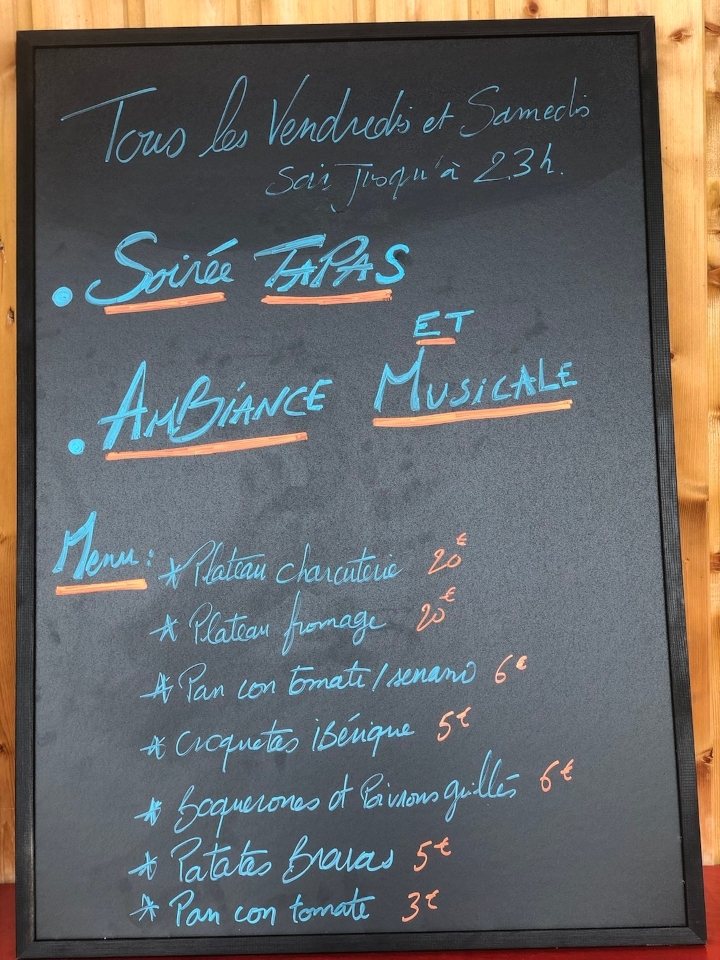 Tous les Vendredis et Samedis
Soir Jusqu'à 23h.
• Soirée TAPAS
ET
• AMBIANCE MUSICALE
Menu: * Plateau charcuterie 20€
* Plateau fromage 20€
* Pan con tomate/serrano 6€
* Croquetas iBérique 5€
* Boquerones et Poivrons grillés 6€
* Patatas Bravas 5€
* Pan con tomate 3€